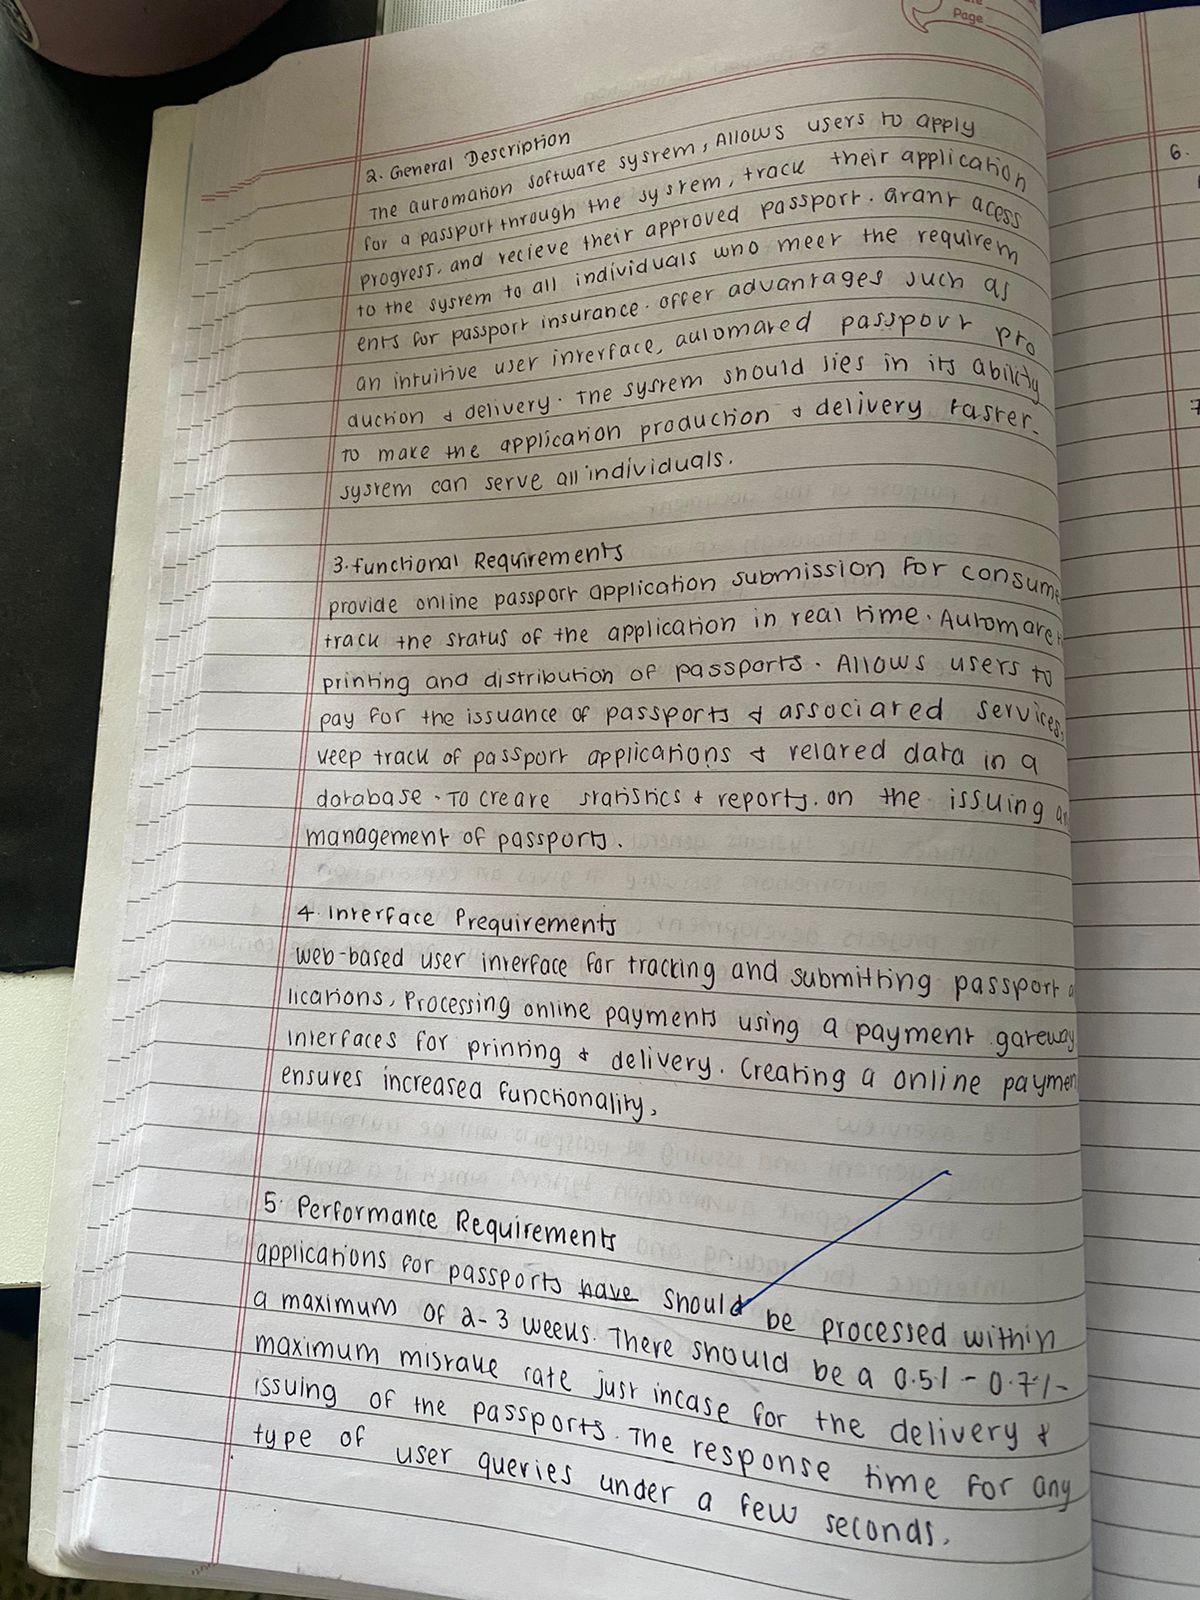 Page
2. General Description
The automation software system, Allows users to apply
for a passport through the system, track their application
progress, and recieve their approved passport. Grant acess
to the system to all individuals who meet the requirem
ents for passport insurance. offer advantages such as
an intuitive user interface, automated passport pro
duction & delivery. The system should lies in its ability
To make the application production & delivery faster.
system can serve all individuals.
3. functional Requirements
provide online passport application submission for consume
track the status of the application in real time. Automate
printing and distribution of passports. Allows users to
pay for the issuance of passports & associated services,
keep track of passport applications & related data in a
database. To create statistics & reports. on the issuing an
management of passports.
4. Interface Prequirements
web-based user interface for tracking and submitting passport a
lications, Processing online payments using a payment gateway
interfaces for printing & delivery. Creating a online paymen
ensures increased functionality,
5. Performance Requirements
applications for passports have should be processed within
a maximum of 2-3 weeks. There should be a 0.5% - 0.7%-
maximum mistake rate just incase for the delivery &
issuing of the passports. The response time for any
type of user queries under a few seconds.
6.
7